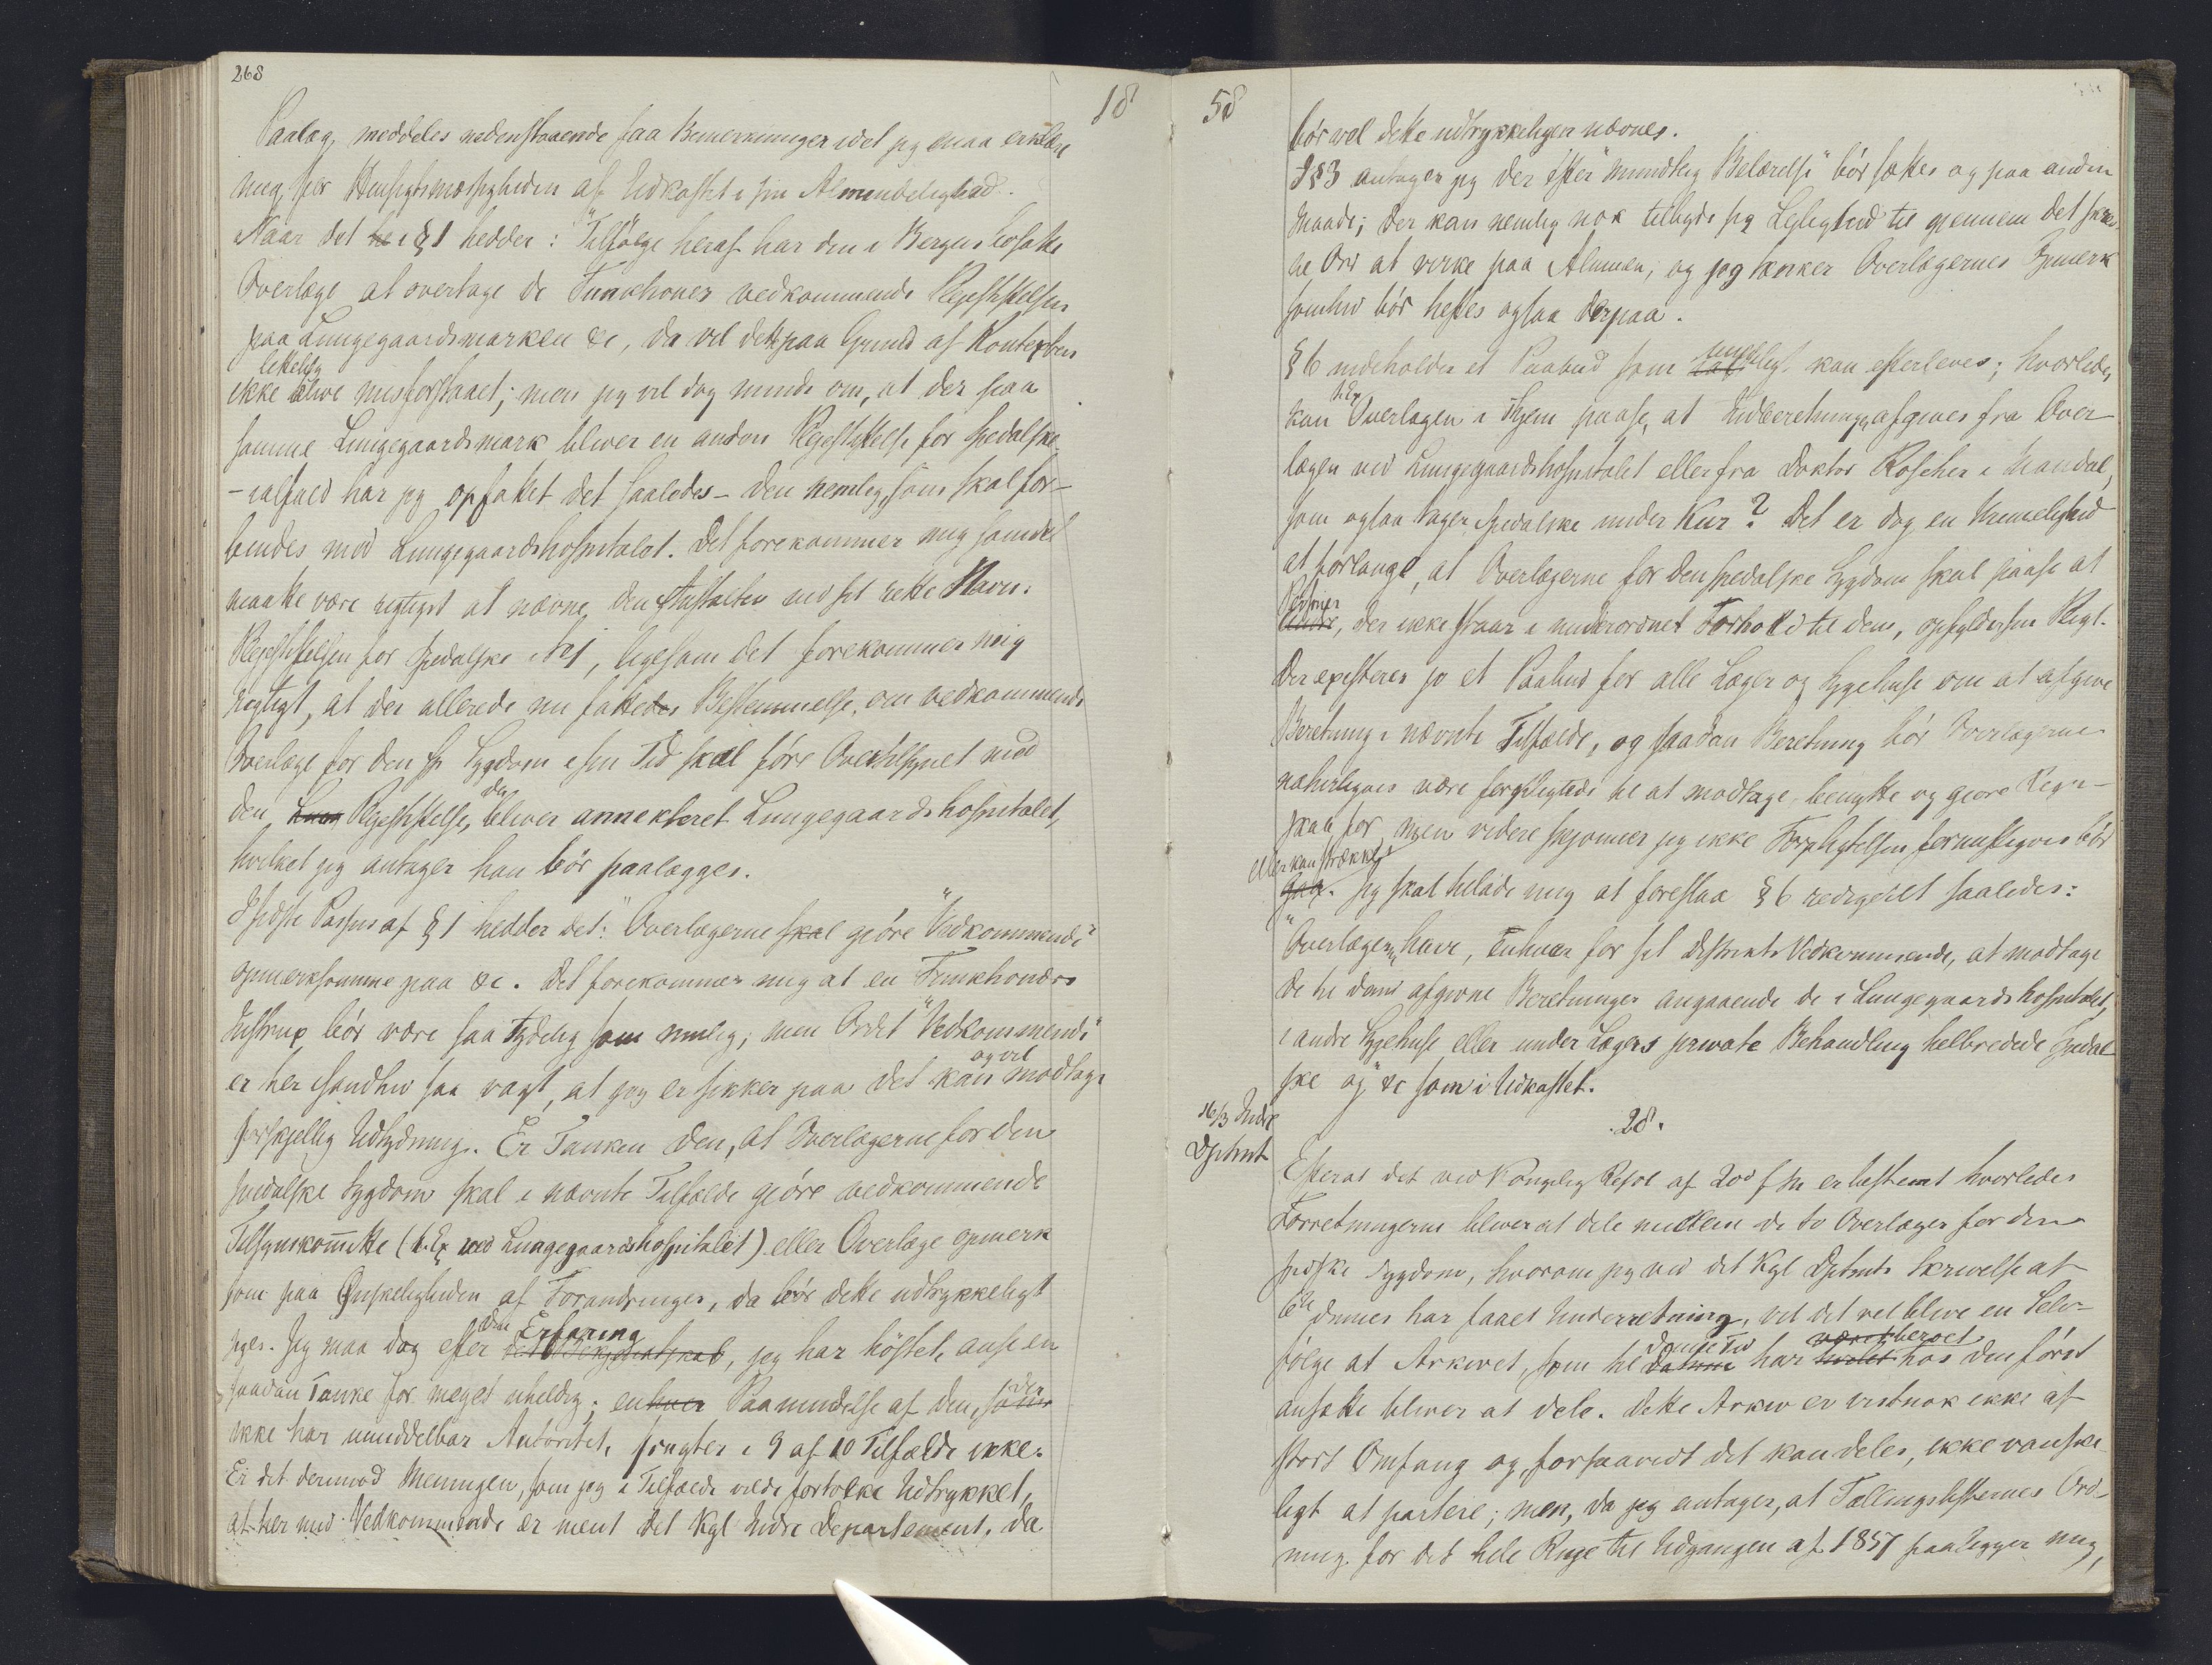 268
18
Paalæg, meddeles nedenstaaende faa Bemerkninger idet jeg maa erklære
mig for Hensigtsmæssigheden af Udkastet i sin Almindelighed.
Naar det he i § 1 hedder: "Tilfölge heraf har den i Bergen bosatte
Overlæge at overtage de Funktioner vedkommende Plejestiftelsen
paa Lungegaardsmarken &c, da vil dette paa Grund af Kontexten
lettelig
ikke blive misforstaaet; men jeg vil dog minde om, at der paa
samme Lungegaardsmark bliver en anden Plejestiftelse for Spedalske
- ialfald har jeg opfattet det saaledes - den nemlig, som skal for-
bindes med Lungegaardshospitalet. Det forekommer mig som det
maatte være rigtigst at nævne den Anstalten ved sit rette Navn:
Plejestiftelsen for Spedalske No 1, ligesom det forekommer mig
rigtigt, at der allerede nu fattedes Bestemmelse, om vedkommende
Overlæge for den sp. Sygdom i sin Tid skal före Overtilsynet med
der
den Lung Plejestiftelse, bliver annekteret Lungegaardshospitalet,
hvilket jeg antager han bör paalægges.
I sidste Passus af § 1 hedder det: "Overlægerne skal gjöre "Vedkommende"
opmerksomme paa &c. Det forekommer mig at en Funktionærs
Instrux bör være saa tydelig som mulig; men Ordet "Vedkommende"
og vil
er her isandhed saa vagt, at jeg er sikker paa det kan modtage
forskjellig Udtydning. Er Tanken den, at Overlægerne for den
spedalske Sygdom skal i nævnte Tilfælde gjöre vedkommende
Tilsynskomitte (t.Ex ved Lungegaardshospitalet) eller Overlæge opmerk
som paa Önskeligheden af Forandringer, da bör dette udtrykkeligt
den Erfaring
siges. Jeg maa dog efter det Bekjendtskab, jeg har höstet, anse en
saadan Tanke for meget uheldig; enhver Paamindelse af den, som der
ikke har umiddelbar Autoritet, frugter i 9 af 10 Tilfælde ikke.
Er det derimod Meningen, som jeg i Tilfælde vilde fortolke Udtrykket,
at her med Vedkommende er ment det Kgl Indre Departement, da
58
bör vel dette udtrykkeligen nævnes.
I § 3 antager jeg der efter "mundtlig Belærelse" bör sættes og paa anden
Maade; der kan nemlig nok tilbyde sig Leilighed til gjennem det skrev-
ne Ord at virke paa Almuen, og jeg tænker Overlægernes Opmerk
somhed bör heftes ogsaa derpaa.
umuligt
§ 6 indeholder et Paabud som kan efterleves; hvorledes
t.Ex
kan Overlægen i Thjem paase, at Indberetninger afgives fra Over
lægen ved Lungegaardshospitalet eller fra Doktor Roscher i Mandal,
som ogsaa tager Spedalske under Kur? Det er dog en Urimelighed
at forlange, at Overlægerne for den spedalske Sygdom skal paase at
Personer
Andre, der ikke staar i underordnet Forhold til dem, opfylder sin Pligt.
Der existerer jo et Paabud for alle Læger og Sygehuse om at afgive
Beretning i nævnte Tilfælde, og saadan Beretning bör Overlægerne
naturligvis være forpligtede til at modtage, benytte og gjöre Regn-
skab for, men videre skjönner jeg ikke Forpligtelsen fornuftigvis bör
eller kan strækkes
gaa. Jeg skal tillade mig at foreslaa § 6 redigeret saaledes:
"Overlægerne have, Enhver for sit Distrikts Vedkommende, at modtage
de til dem afgivne Beretninger angaaende de i Lungegaardshospitalet,
i andre Sygehuse eller under Lægers private Behandling helbredede Spedal
ske og" &c som i Udkastet.
16/3 Indre
Dptmt
28.
Efterat det ved Kongelig Resol af 20de f M er bestemt hvorledes
Forretningerne bliver at dele mellem de to Overlæger for den
spedske Sygdom, hvorom jeg ved det Kgl Dptmts Skrivelse af
6te dennes har faaet Underretning, vil det vel blive en Selv-
denne Tid været beroet
fölge at Arkivet, som til har hvilet hos den först
ansatte bliver at dele. Dette Arkiv er vistnok ikke af
stort Omfang og, forsaavidt det kan deles, ikke vanske
ligt at partere; men, da jeg antager, at Tællingslisternes Ord-
ning for det hele Rige til Udgangen af 1857 paaligger mig,